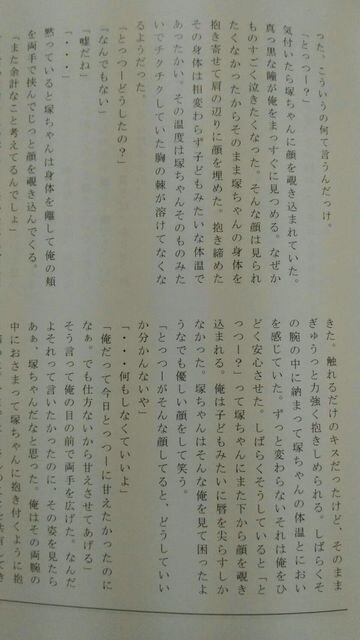 った、こういうの何て言うんだっけ。
「とっつー？」
気付いたら塚ちゃんに顔を覗き込まれていた。
真っ黒な瞳が俺をまっすぐに見つめる。なぜか
ものすごく泣きたくなった。そんな顔は見られ
たくなかったからそのまま塚ちゃんの身体を
抱き寄せて肩の辺りに顔を埋めた。抱き締めた
その身体は相変わらず子どもみたいな体温で
あったかい、その温度は塚ちゃんそのものみた
いでチクチクしていた胸の棘が溶けてなくな
るようだった。
「とっつーどうしたの？」
「なんでもない」
「嘘だね」
「・・・・」
黙っていると塚ちゃんは身体を離して俺の頬
を両手で挟んでじっと顔を覗き込んでくる。
「また余計なこと考えてるんでしょ」
きた。触れるだけのキスだったけど、そのまま
ぎゅうっと力強く抱きしめられる。しばらくそ
の腕の中に納まって塚ちゃんの体温とにおい
を感じていた。ずっと変わらないそれは俺をひ
どく安心させた。しばらくそうしていると「と
っつー？」って塚ちゃんにまた下から顔を覗き
込まれる。俺は子どもみたいに唇を尖らすしか
なかった。塚ちゃんはそんな俺を見て困ったよ
うなでも優しい顔をして笑う。
「とっつーがそんな顔してると、どうしていい
か分かんないや」
「・・・・何もしなくていいよ」
「俺だって今日とっつーに甘えたかったのに
なぁ。でも仕方ないから甘えさせてあげる」
そう言って俺の目の前で両手を広げた。なんだ
よそれって言いたかったのに、その姿を見たら
あぁ、塚ちゃんだなと思った。俺はその両腕の
中におさまって塚ちゃんに抱き付くように抱